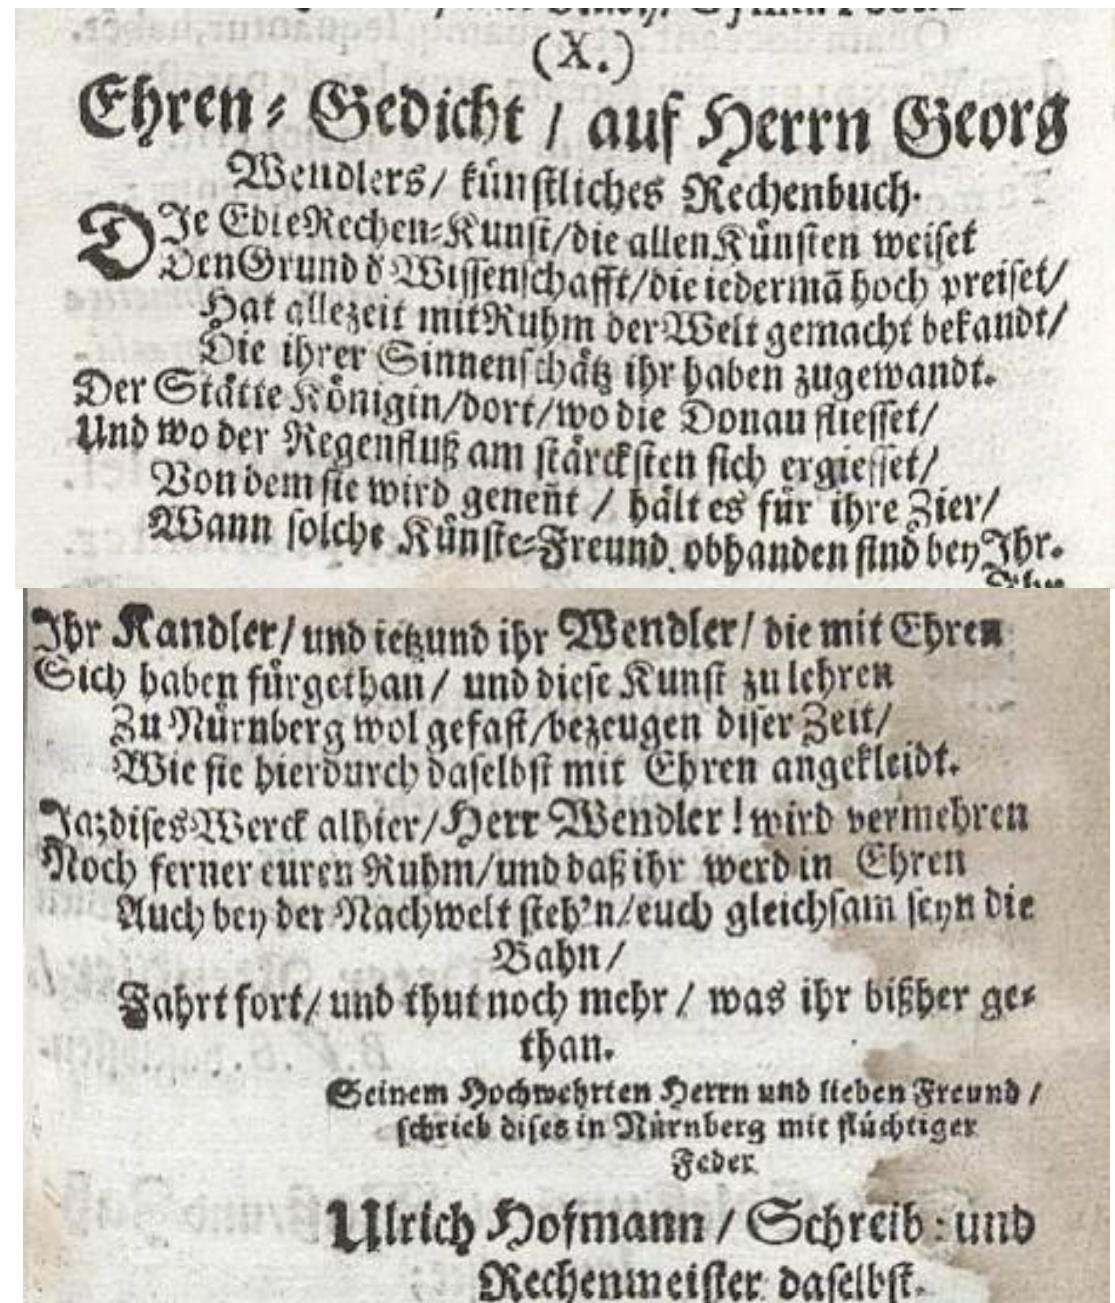 (X.)
Ehren-Gedicht / auf Herrn Georg
Wendlers / künstliches Rechenbuch.
DIe Edle Rechen-Kunst/die allen Künsten weiset
Den Grund d̕ Wissenschafft/die iedermã hoch preiset/
Hat allezeit mit Ruhm der Welt gemacht bekandt/
Die ihrer Sinnenschätz ihr haben zugewandt.
Der Stätte Königin/dort/wo die Donau fliesset/
Und wo der Regenfluß am stärcksten sich ergiesset/
Von dem sie wird geneñt / hält es für ihre Zier/
Wann solche Künste-Freund obhanden sind bey Ihr.
Ihr Kandler/ und ietzund ihr Wendler/ die mit Ehren
Sich haben fürgethan/ und diese Kunst zu lehren
Zu Nürnberg wol gefast/bezeugen diser Zeit/
Wie sie hierdurch daselbst mit Ehren angekleidt.
Ja/dises Werck alhier/Herr Wendler! wird vermehren
Noch ferner euren Ruhm/und daß ihr werd in Ehren
Auch bey der Nachwelt steh'n/euch gleichsam seyn die
Bahn/
Fahrt fort/ und thut noch mehr / was ihr bißher ge-
than.
Seinem Hochwehrten Herrn und lieben Freund /
schrieb dises in Nürnberg mit flüchtiger
Feder
Ulrich Hofmann / Schreib: und
Rechenmeister daselbst.